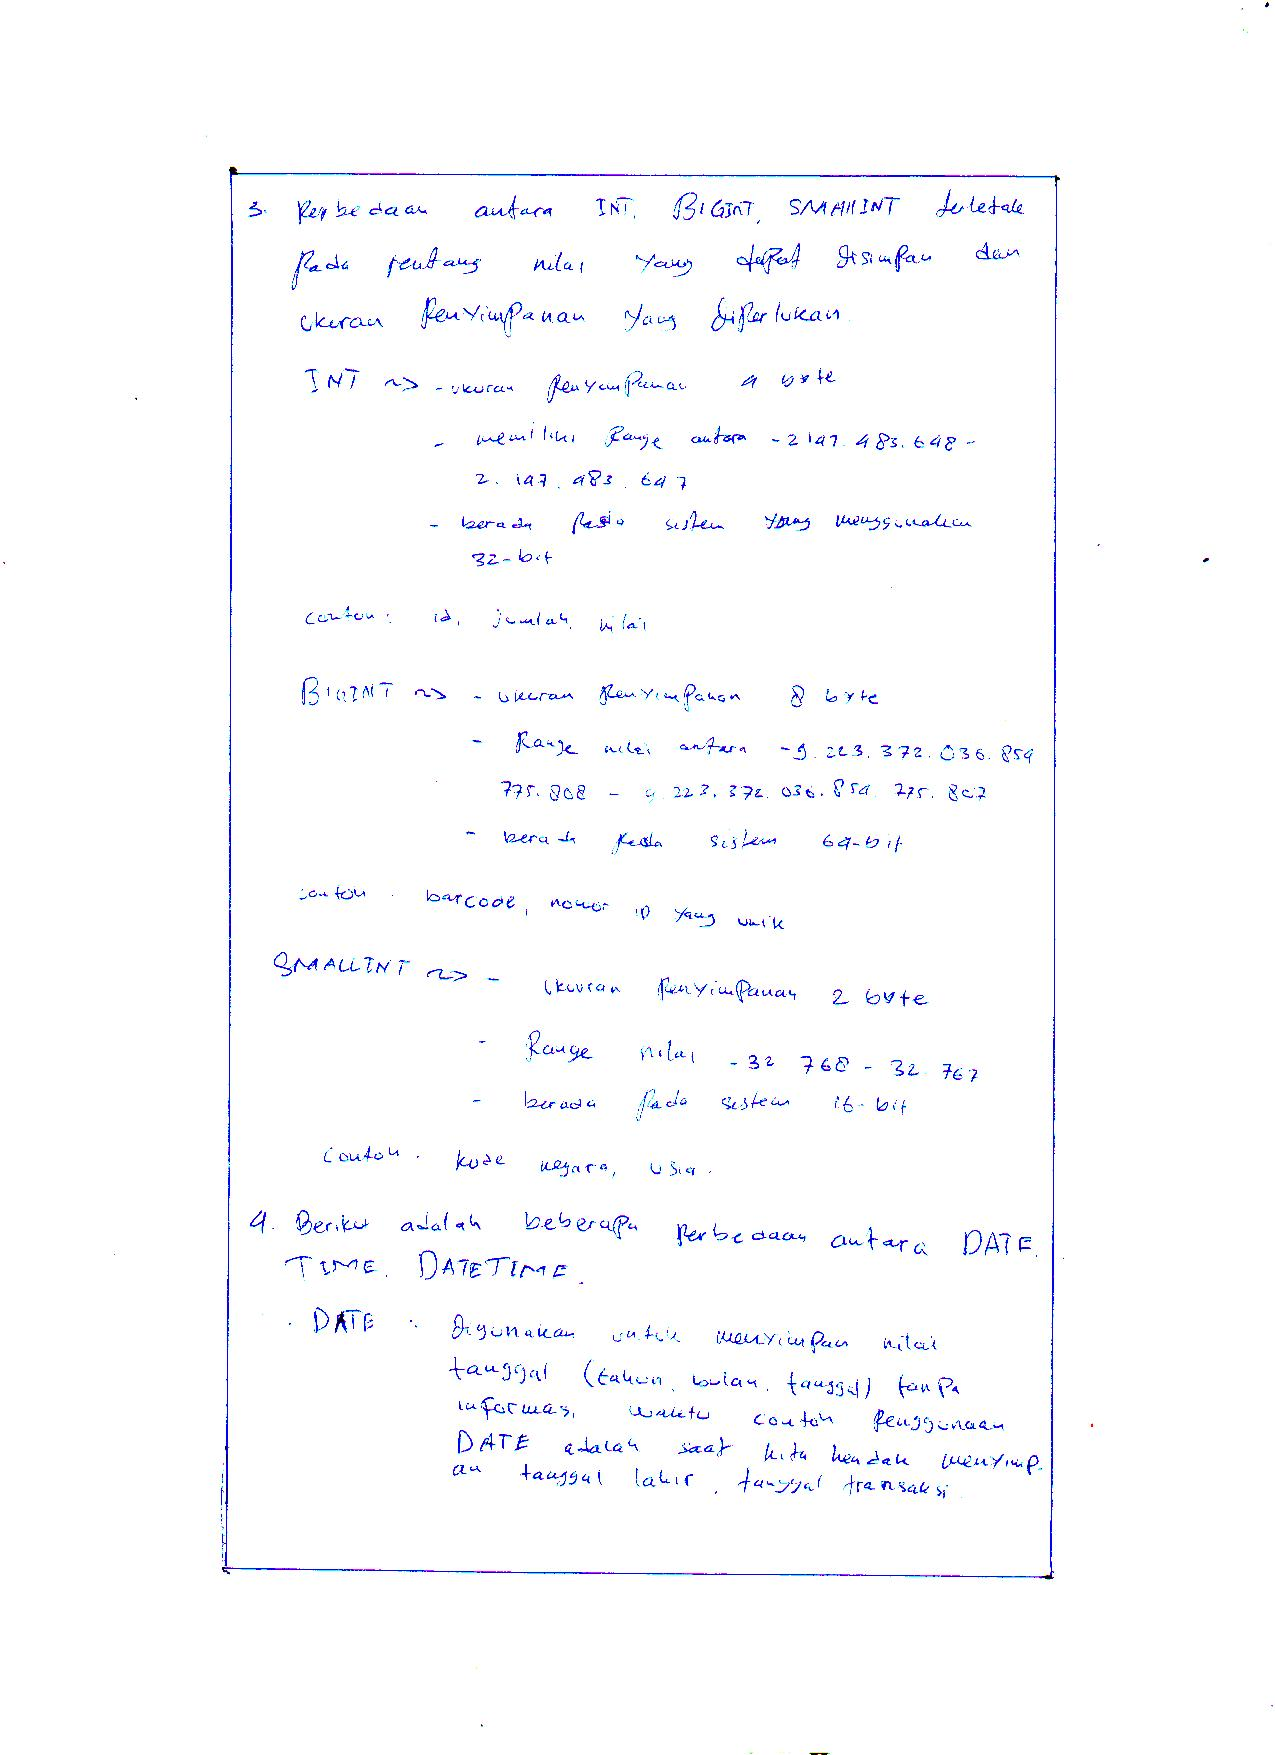 3. Perbedaan antara INT, BIGINT, SMAllINT terletak
Pada rentang nilai yang dapat disimpan dan
ukuran Penyimpanan yang diperlukan
INT ~> - ukuran Penyimpanan 4 byte
- memiliki Range antara -2 147.483.648 -
2.147.483.647
- berada pada sistem yang menggunakan
32-bit
Contoh: id, jumlah, nilai
BIGINT ~> - ukuran Penyimpanan 8 byte
- Range nilai antara -9.223.372.036.854
775.808 - 9.223.372.036.854.775.807
- berada pada sistem 64-bit
contoh: barcode, nomor ID yang unik
SMALLINT ~> - Ukuran Penyimpanan 2 byte
- Range nilai -32 768 - 32 767
- berada pada sistem 16-bit
Contoh: kode negara, usia.
4. Berikut adalah beberapa Perbedaan antara DATE,
TIME, DATETIME.
. DATE : Digunakan untuk menyimpan nilai
tanggal (tahun, bulan, tanggal) tanpa
informasi waktu contoh Penggunaan
DATE adalah saat kita hendak menyimp
an tanggal lahir, tanggal transaksi